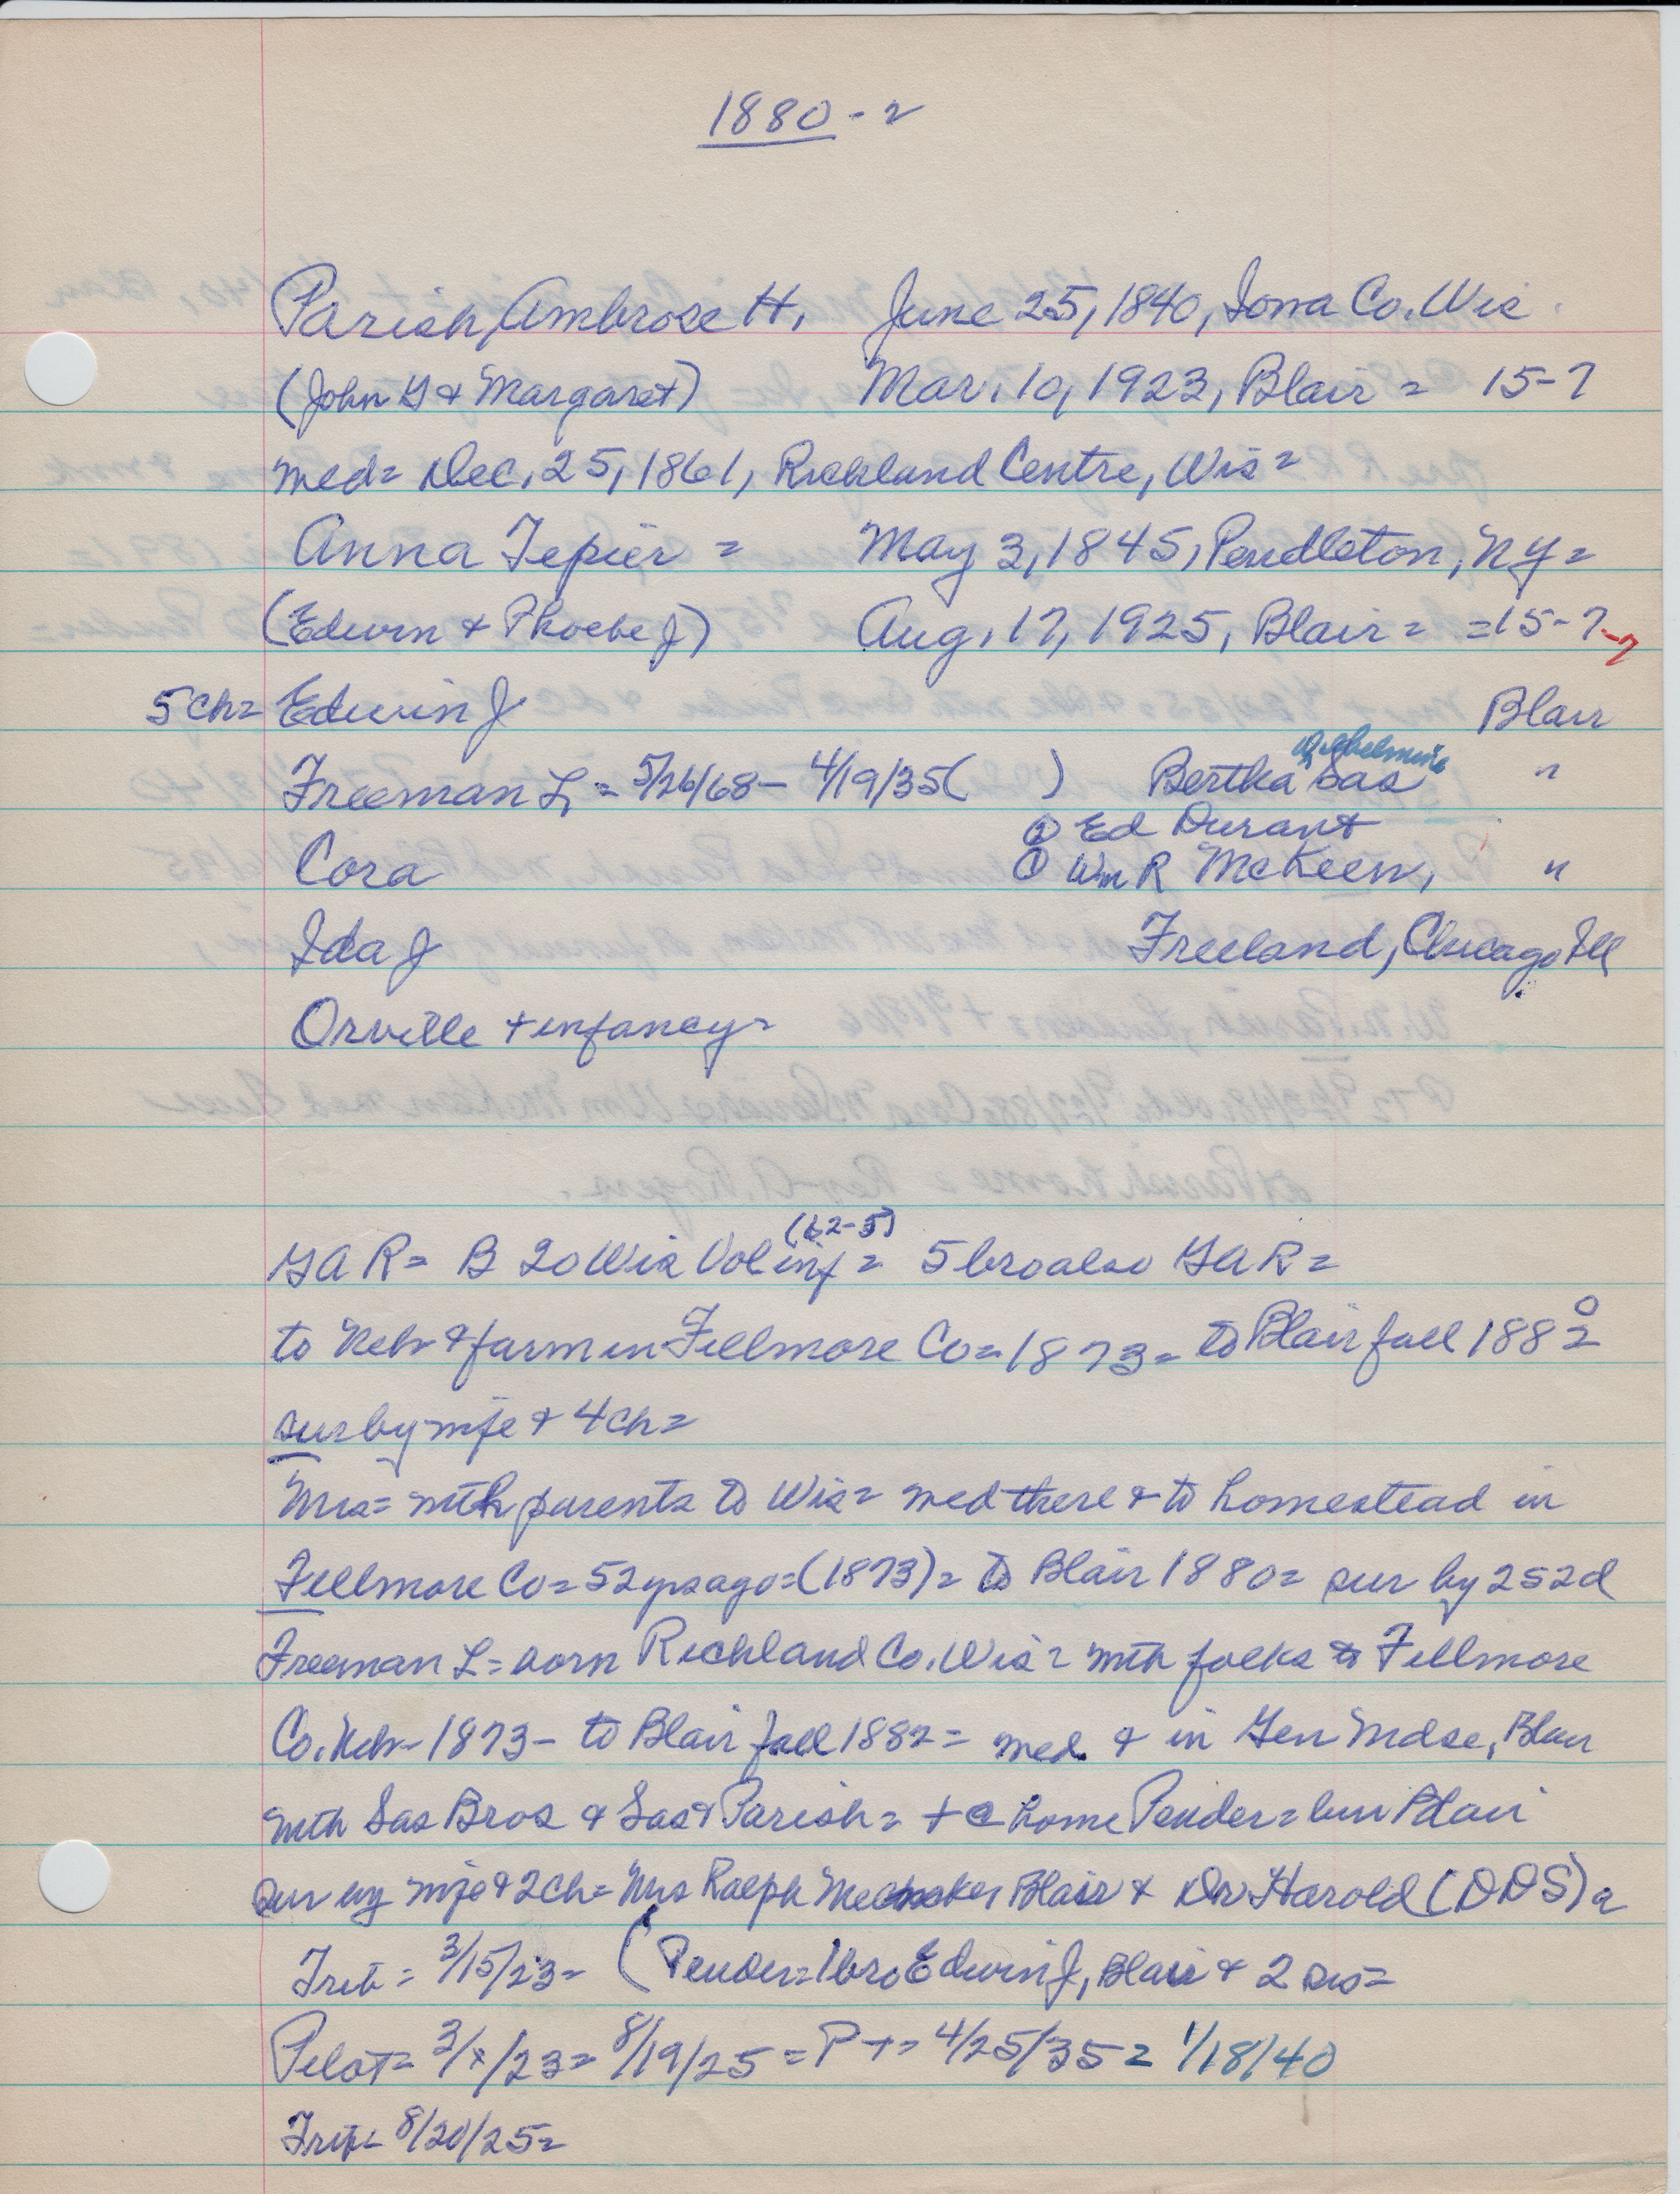 1880-2
Parish, Ambrose H, June 25, 1840, Iowa Co. Wis.
(John G & Margaret) Mar. 10, 1923, Blair = 15-7
med = Dec. 25, 1861, Richland Centre, Wis =
Anna Tepier = May 3, 1845, Pendleton, NY =
(Edwin & Phoebe J) Aug, 17, 1925, Blair = =15-7-7
5 ch = Edwin J Blair
Wilhelmina
Freeman L, = 5/26/68 - 4/19/35 ( ) Bertha Sas "
② Ed Durant
Cora ① Wm R McKeen, "
Ida J Freeland, Chicago Ill
Orville + infancy =
(62-5)
GAR = B 20 Wis Vol inf = 5 bro also GAR =
0
to Neb & farm in Fillmore Co = 1873 = to Blair fall 1882
sur by wife & 4 ch =
Mrs = with parents to Wis = med there & to homestead in
Fillmore Co = 52 yrs ago = (1873) = to Blair 1880 = sur by 2 s 2 d
Freeman L = born Richland Co. Wis = with folks to Fillmore
Co. Neb - 1873 - to Blair fall 1882 = med. & in Gen Mdse, Blair
with Sas Bros & Sas & Parish = + @ home Pender = bur Blair
sur by wife & 2 ch = Mrs Ralph Blair & Dr Harold (DDS) =
Trib = 3/15/23 = ( Pender = 1 bro Edwin J, Blair & 2 sis =
Pilot = 3/x/23 = 8/19/25 = P T = 4/25/35 = 1/18/40
Trib = 8/20/25 =